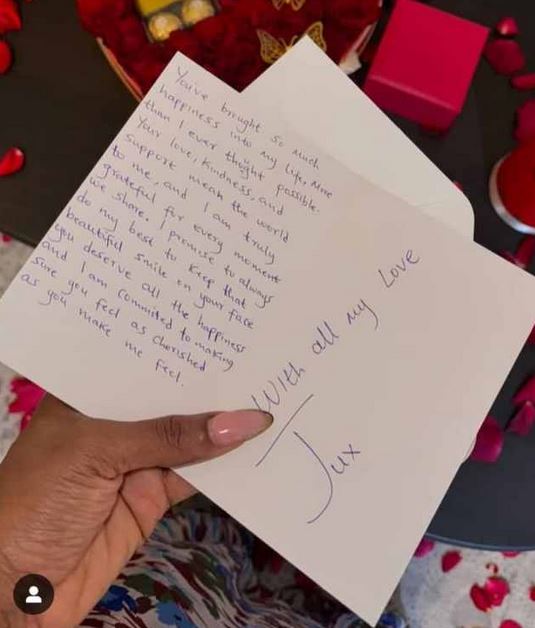 You've brought so much
happiness into my life, more
than I ever thought possible.
Your love, kindness, and
support mean the world
to me, and I am truly
grateful for every moment
we share. I promise to always
do my best to keep that
beautiful smile on your face
you deserve all the happiness
and I am commited to making
sure you feel as cherished
as you make me feel.
With all my Love
Jux